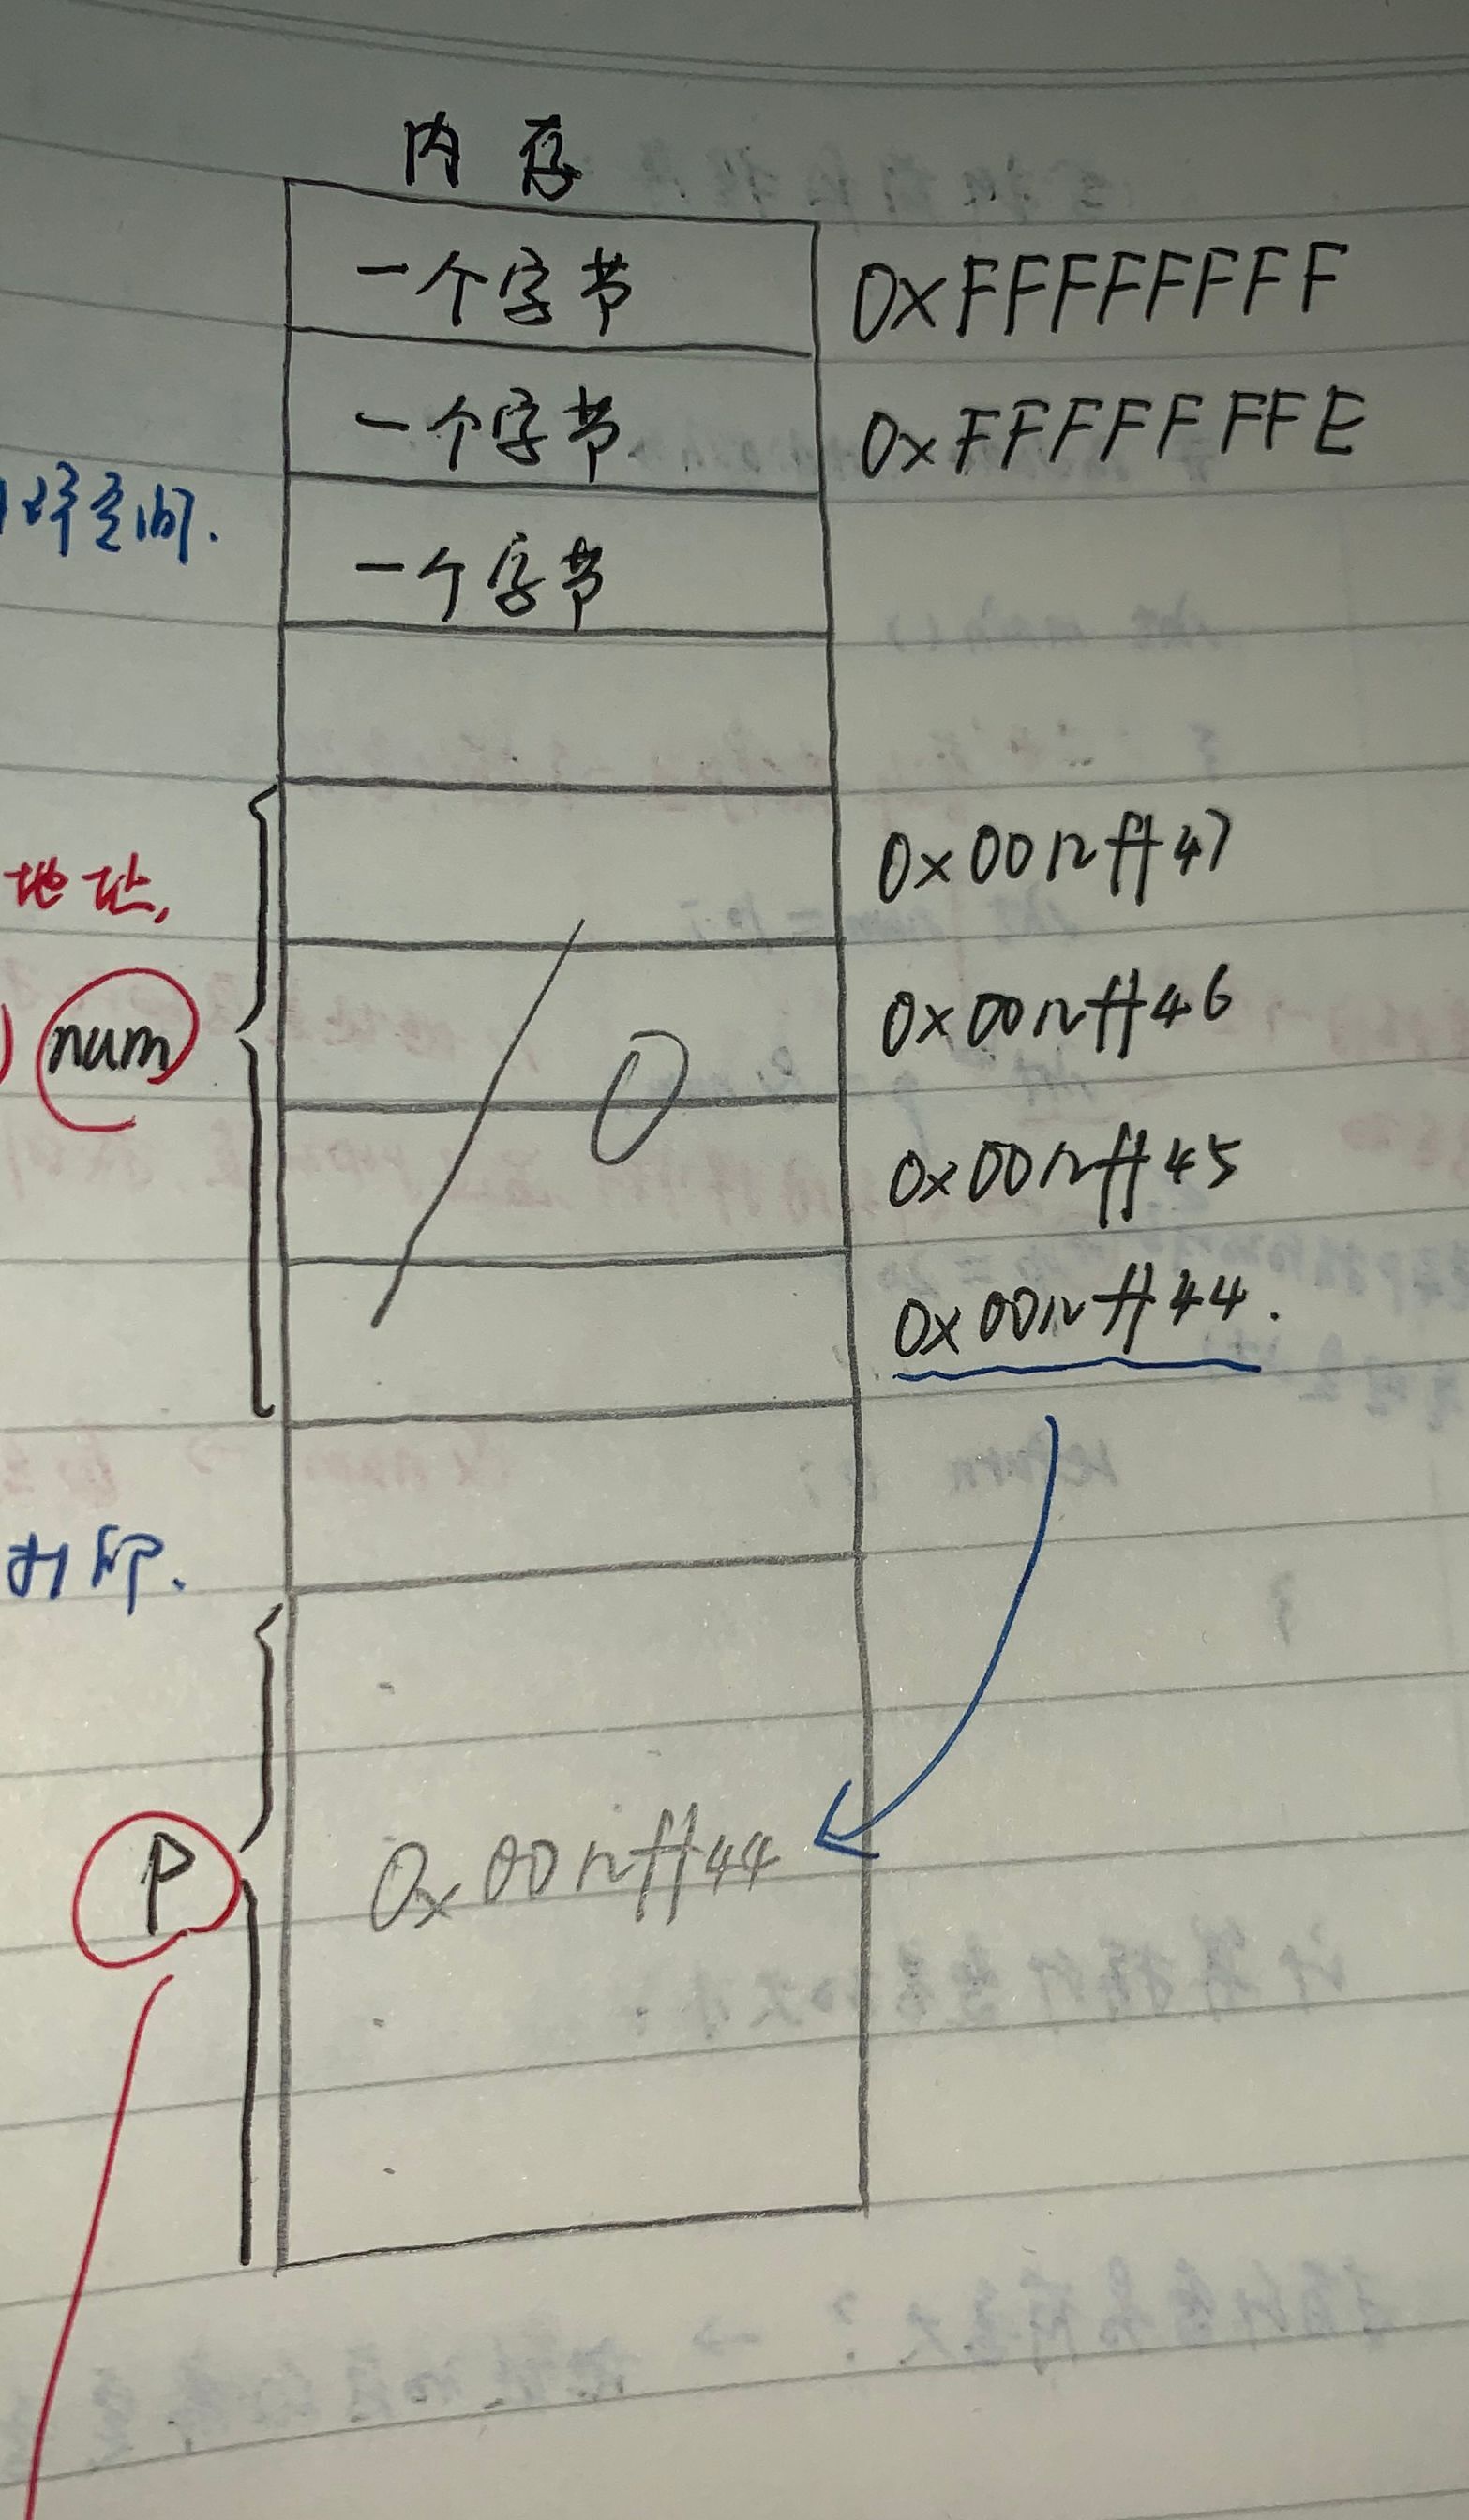 内存
一个字节 0xFFFFFFFF
一个字节 0xFFFFFFFE
空间.
一个字节
0x0012ff47
地址,
num 10 0x0012ff46
0x0012ff45
0x0012ff44.
打印.
P 0x0012ff44